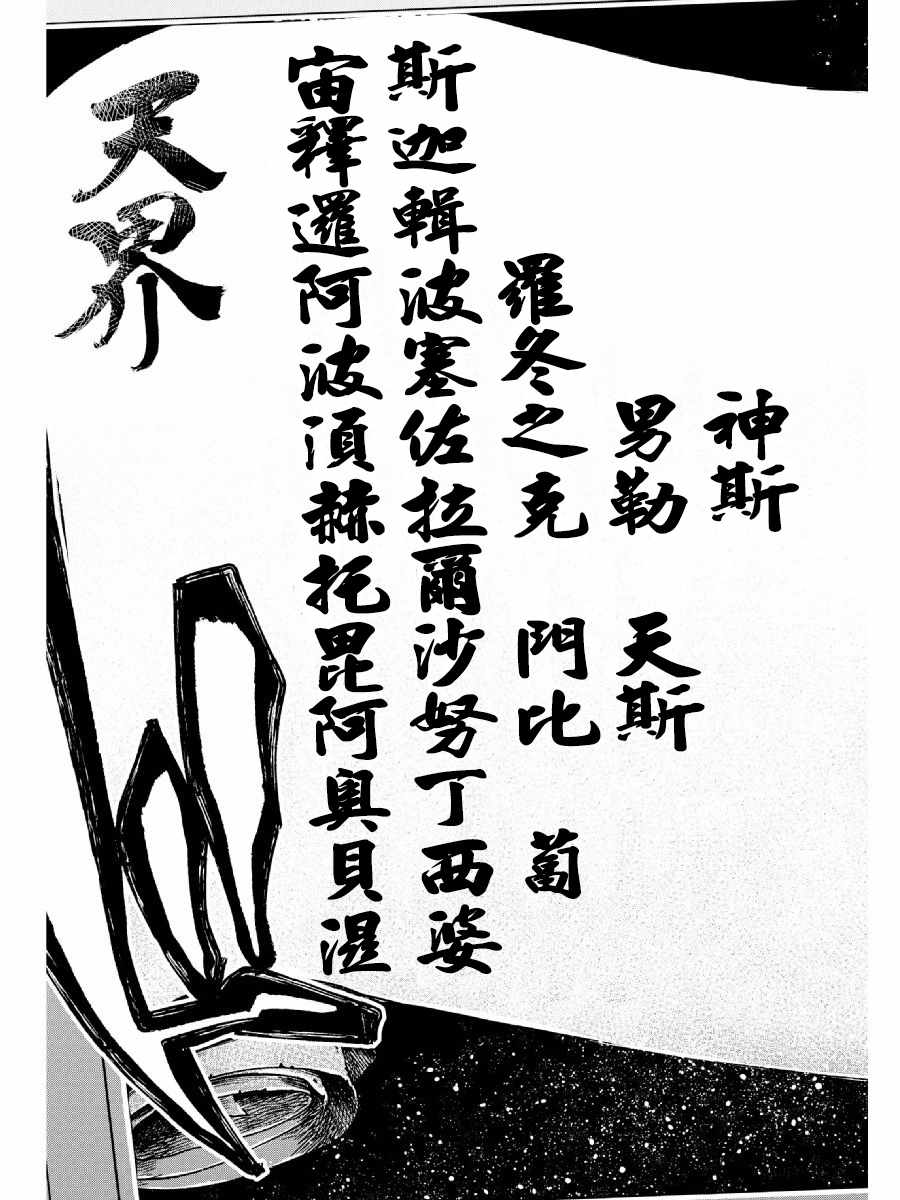 神斯
男勒 天斯
羅冬之克 門比 蔔
斯迦輯波塞佐拉爾沙努丁西婆
宙釋邏阿波湏赫托毘阿奧貝湿
天界